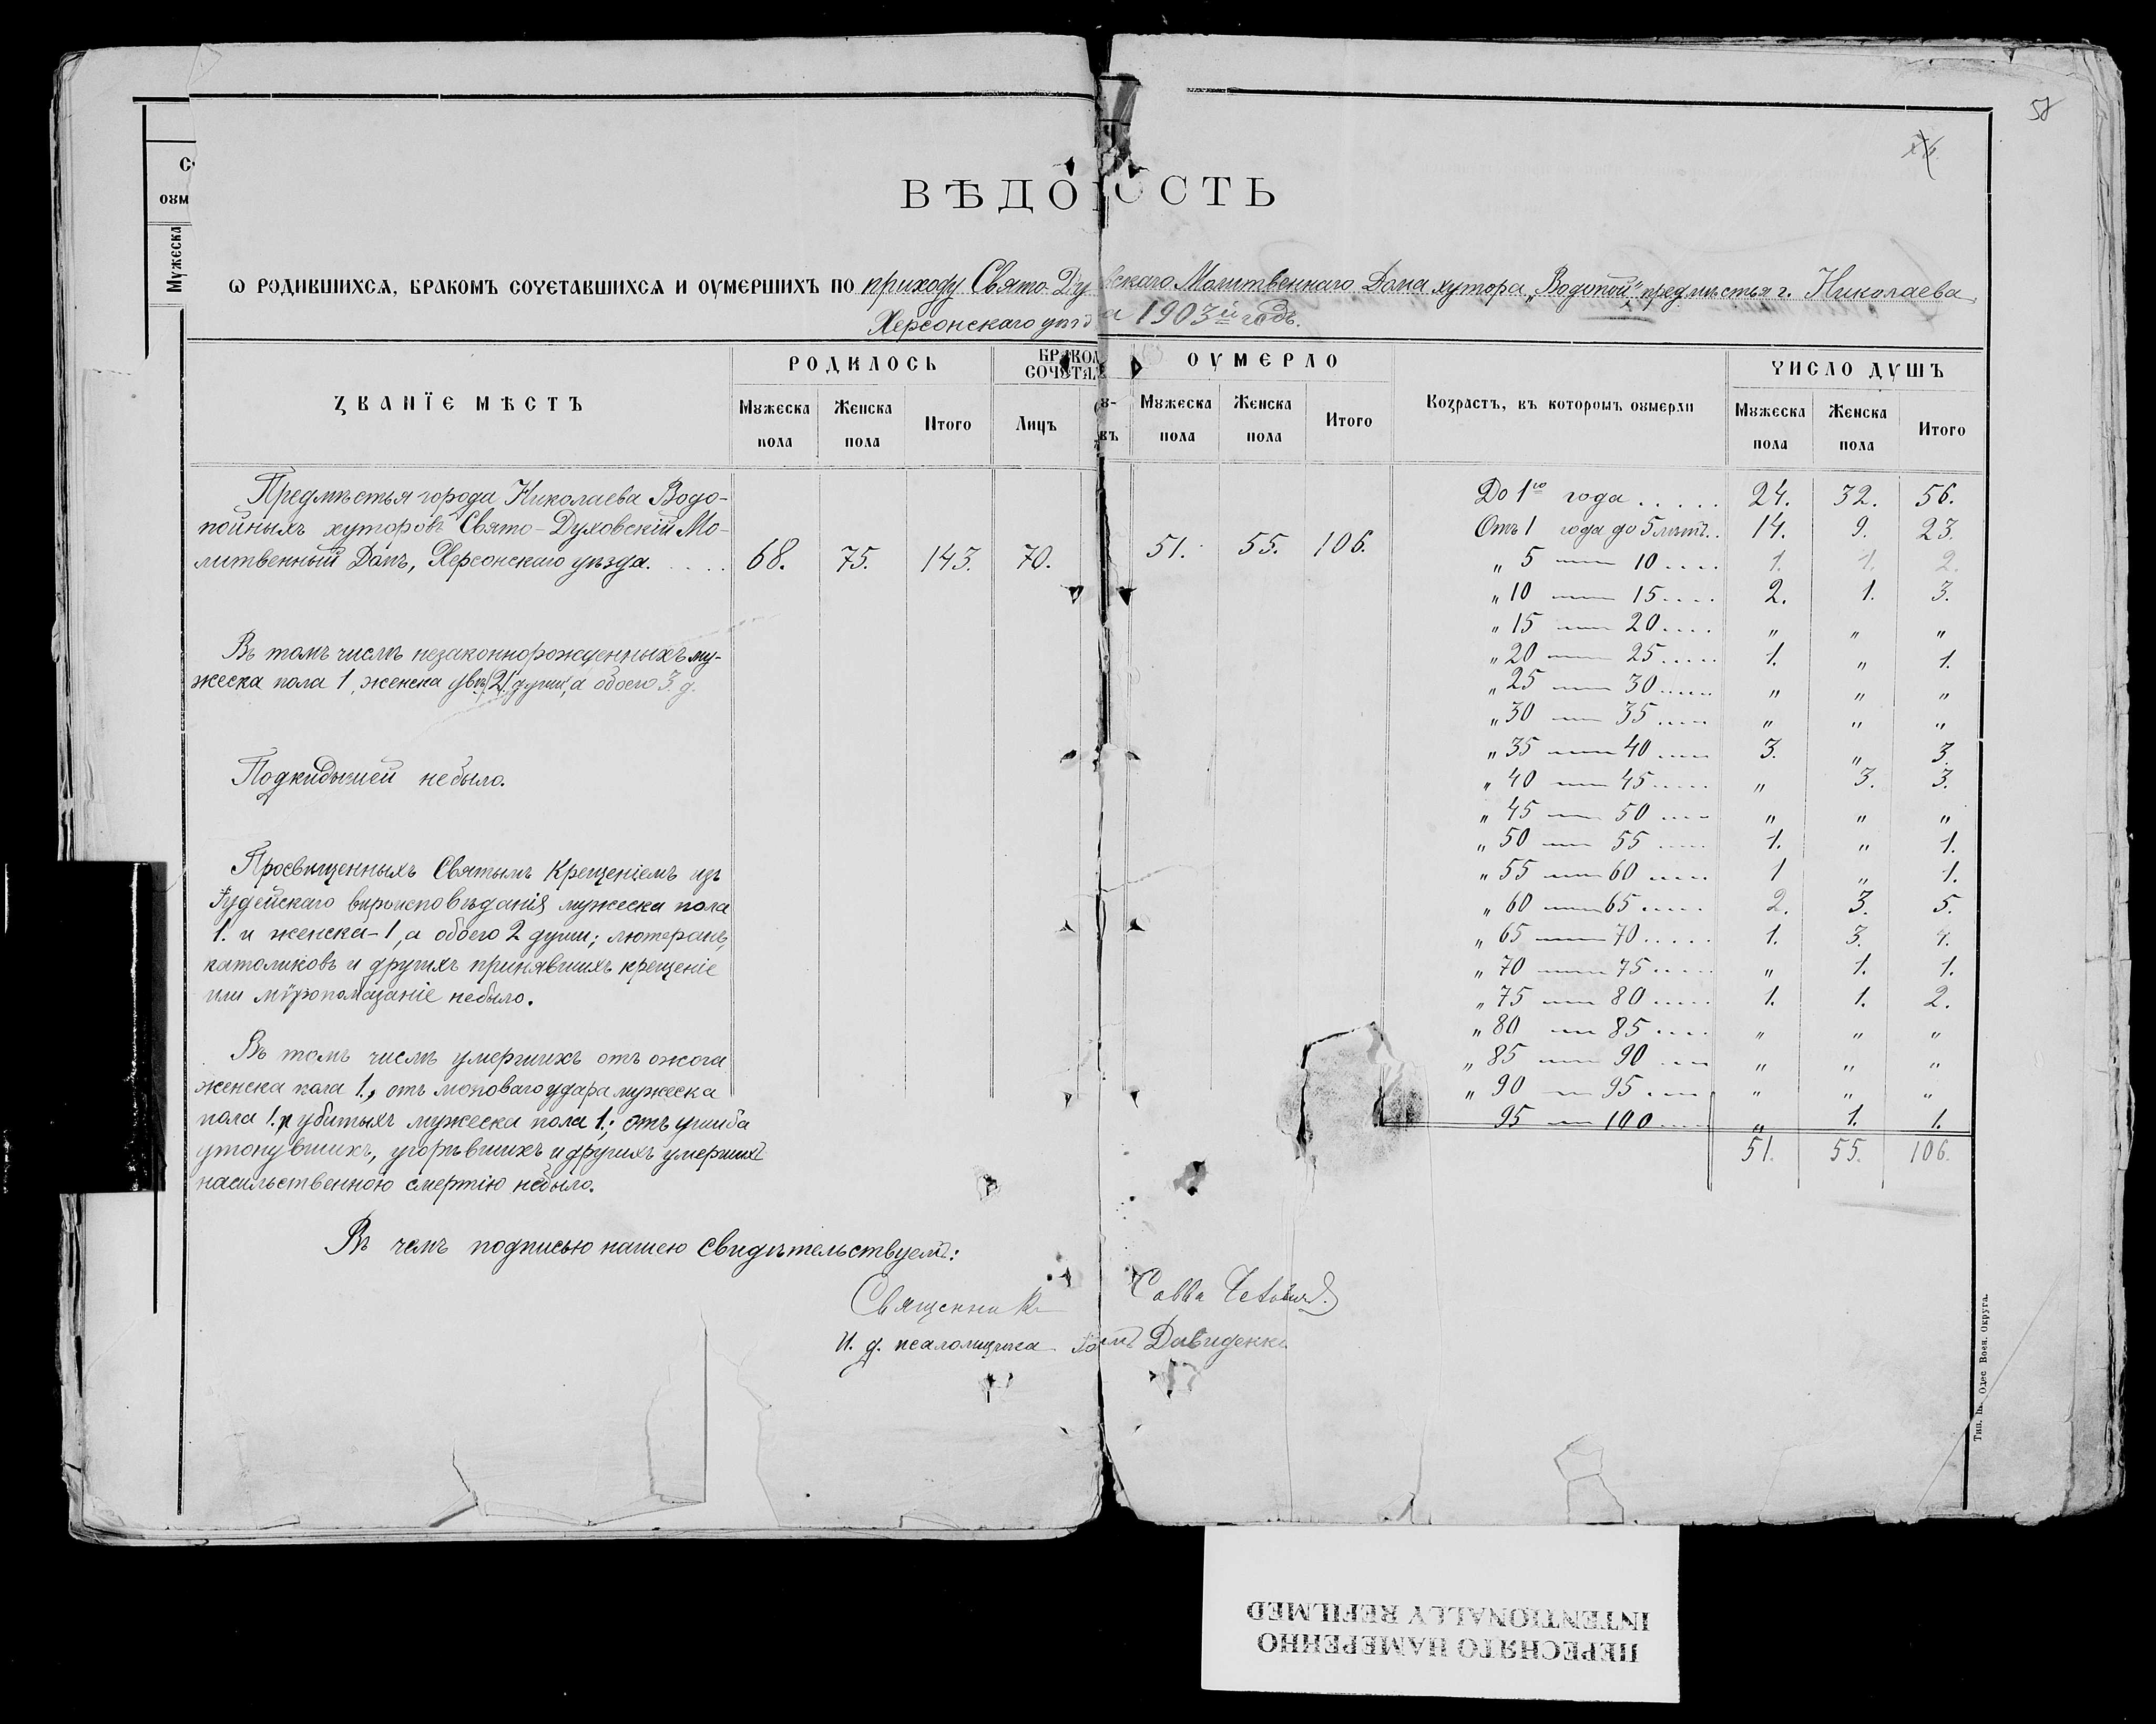 58
ВѢДОМОСТЬ
Ѡ РОДИВШИХСѦ, БРАКОМЪ СОЧЕТАВШИХСѦ И ОУМЕРШИХЪ ПО приходу Свято-Духовскаго Молитвеннаго Дома хутора „Водопой“ предмѣстья г. Николаева,
Херсонскаго уѣзда 1903й годъ.
ЗВАНЇЕ МѢСТЪ
РОДИЛОСЬ
БРАКОМ СОЧЕТАЛ
ОУМЕРЛО
Возрастъ, въ которомъ оумерли
ЧИСЛО ДУШЪ
Мужеска пола Женска пола Итого Лицъ
Мужеска пола Женска пола Итого
Мужеска пола Женска пола Итого
Предмѣстья города Николаева Водо-
пойныхъ хуторовъ Свято-Духовскій Мо-
литвенный Домъ, Херсонскаго уѣзда. 68. 75. 143. 70. 51. 55. 106.
Въ томъ числѣ незаконнорожденныхъ му-
жеска пола 1, женска двѣ (2) души, а обоего 3 д.
Подкидышей небыло.
Просвѣщенныхъ Святымъ Крещеніемъ изъ
Іудейскаго вѣроисповѣданія мужеска пола
1. и женска-1, а обоего 2 души; лютеранъ,
католиковъ и другихъ принявшихъ крещеніе
или мѵропомазаніе небыло.
Въ томъ числѣ умершихъ отъ ожога
женска пола 1., отъ удара мужеска
пола 1. и убитыхъ мужеска пола 1.; отъ ушиба
утонувшихъ, угорѣвшихъ и другихъ умершихъ
насильственною смертію небыло.
До 1го года ..... 24. 32. 56.
Отъ 1 года до 5 лѣтъ.. 14. 9. 23.
„ 5 — 10 .... 1. 1. 2.
„ 10 — 15 .... 2. 1. 3.
„ 15 — 20 .... „ „ „
„ 20 — 25 ..... 1. „ 1.
„ 25 — 30 ..... „ „ „
„ 30 — 35 ..... „ „ „
„ 35 — 40 ..... 3. „ 3.
„ 40 — 45 ..... „ 3. 3.
„ 45 — 50 ..... „ „ „
„ 50 — 55 ..... 1. „ 1.
„ 55 — 60 ..... 1 „ 1.
„ 60 — 65 ..... 2. 3. 5.
„ 65 — 70 ..... 1. 3. 4.
„ 70 — 75 ..... „ 1. 1.
„ 75 — 80 ..... 1. 1. 2.
„ 80 — 85 .... „ „ „
„ 85 — 90 .... „ „ „
„ 90 — 95 .... „ „ „
95 — 100 ..... „ 1. 1.
51. 55. 106.
Въ чемъ подписью нашею свидѣтельствуемъ:
Священник Савва
И. д. псаломщика Давиденко
Тип. Одес Воен. Округа.
ПЕРЕСНЯТО НАМЕРЕННО
INTENTIONALLY REFILMED